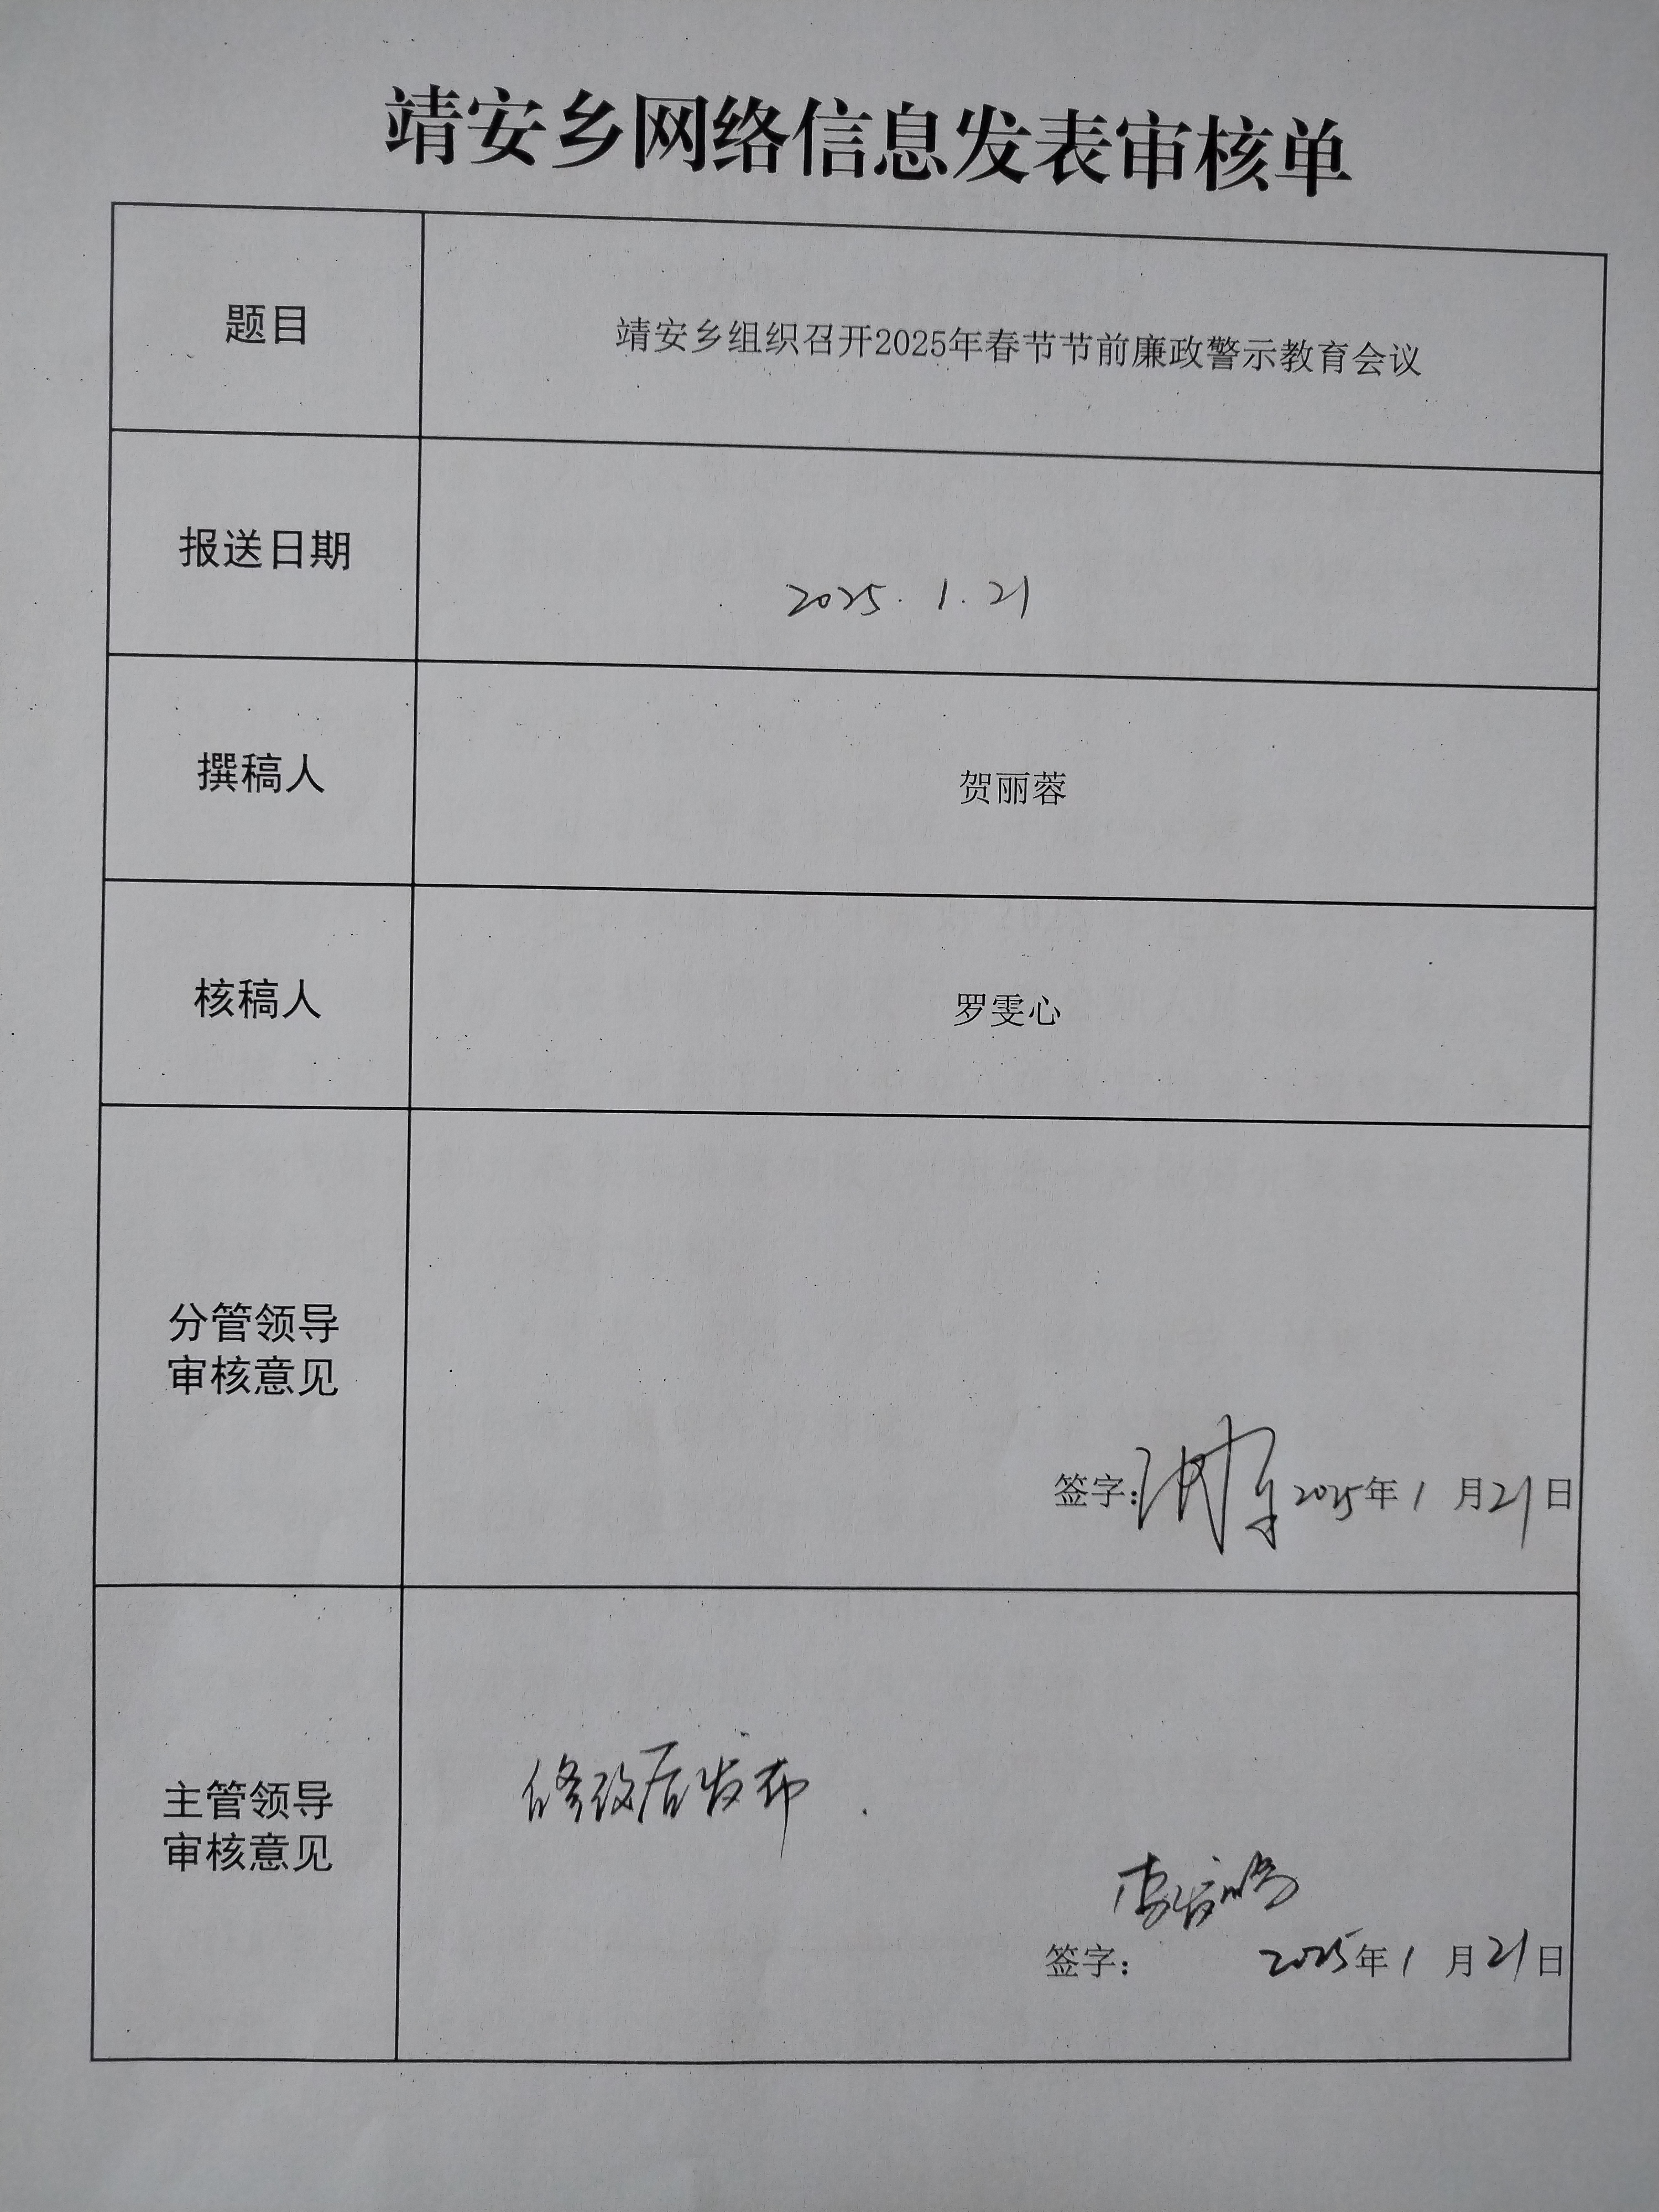 靖安乡网络信息发表审核单
题目
靖安乡组织召开2025年春节节前廉政警示教育会议
报送日期
2025.1.21
撰稿人
贺丽蓉
核稿人
罗雯心
分管领导
审核意见
签字: 2025年1月21日
主管领导
审核意见
修改后发布.
签字: 2025年1月21日